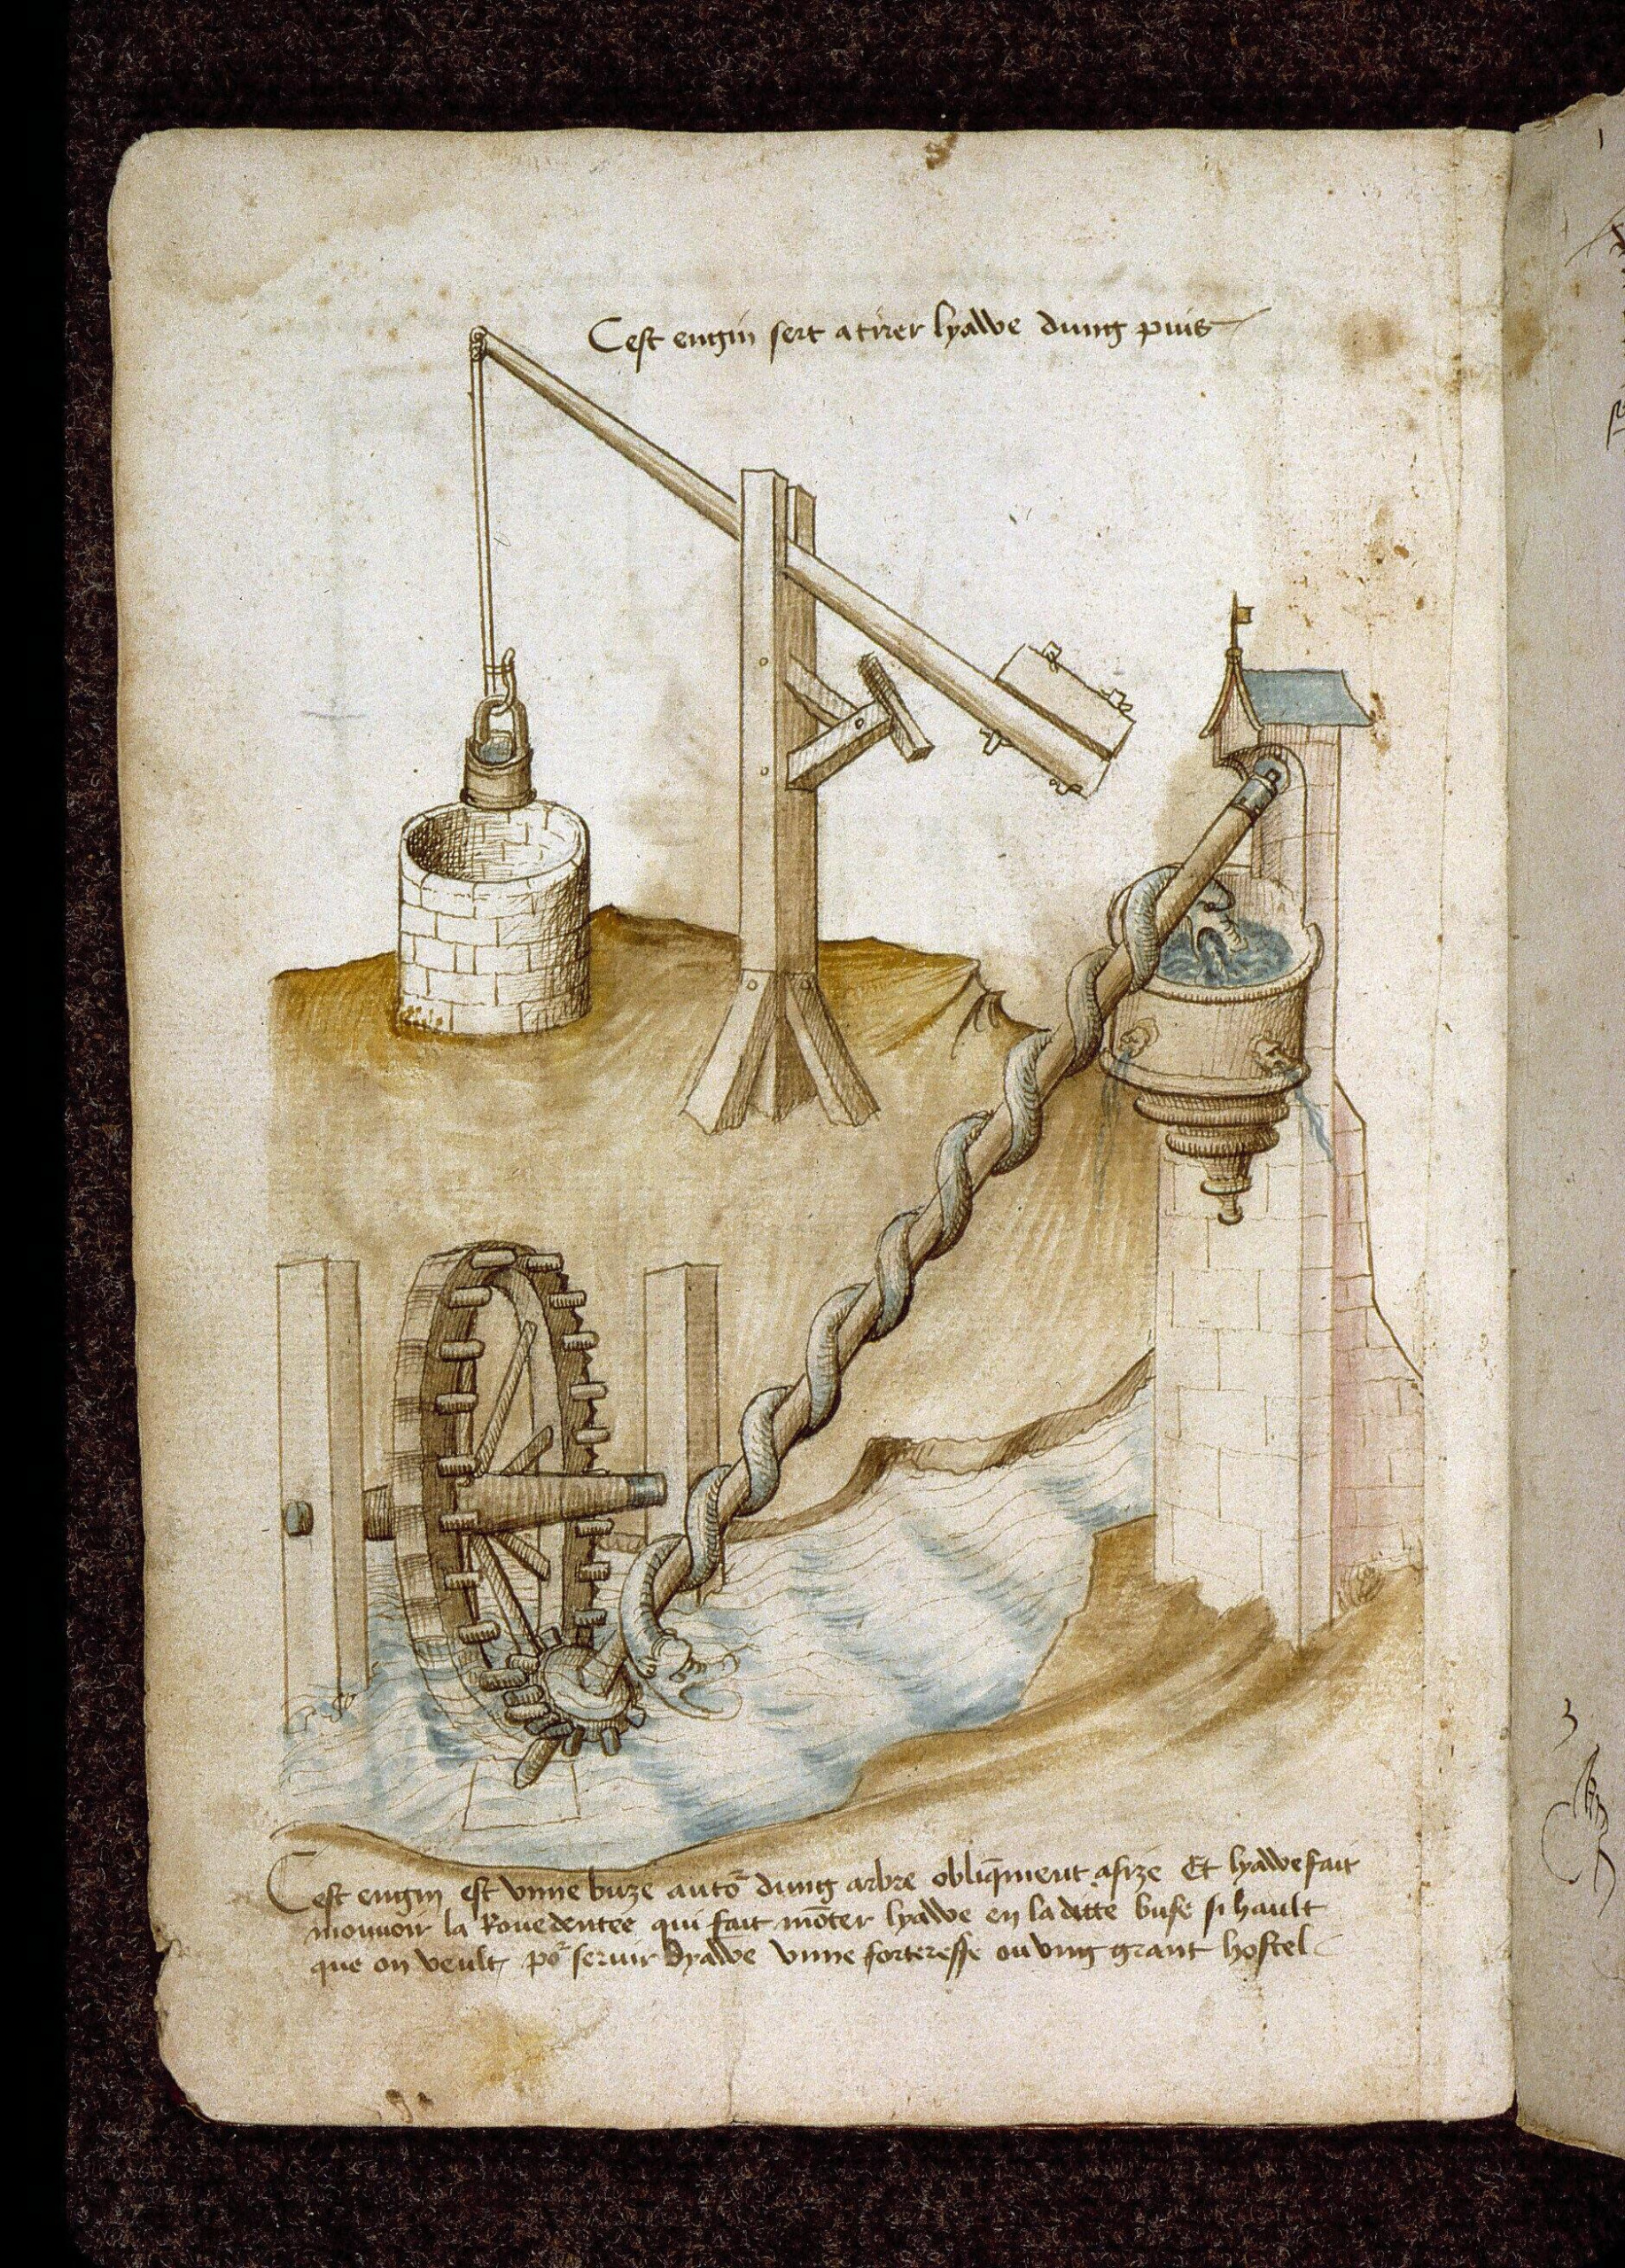 Cest engin sert a tirer lyawe dung puis
Cest engin est vnne buze auto᷑ dung arbre obliq̄ment asize Et lyawe fait
mouuoir la Roue dentee qui fait mōter lyawe en la ditte buse si hault
que on veult po᷑ seruir dyawe vnne forteresse ou vng grant hostel